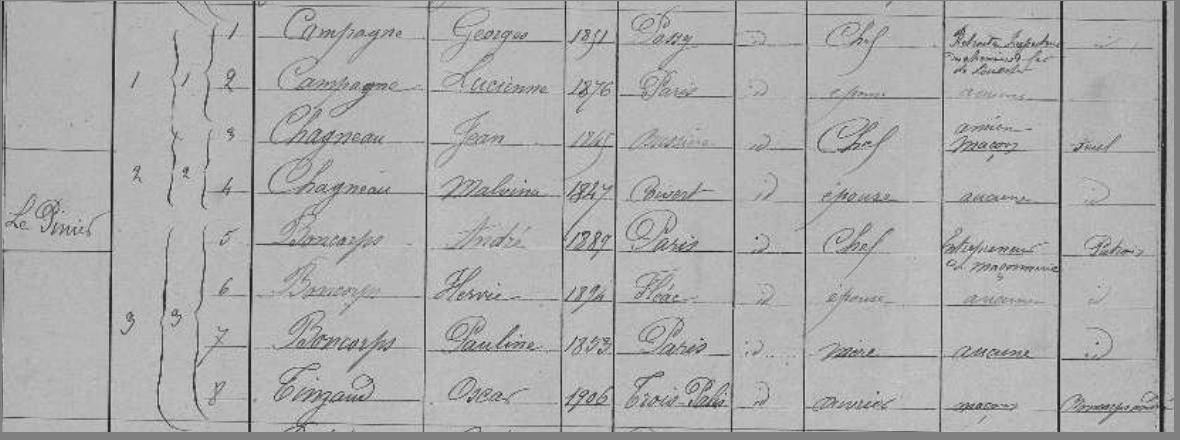 1 Campagne Georges 1851 Passy id Chef Retraité Inspecteur id
chemins de fer
1 1 2 Campagne Lucienne 1876 Paris id épouse aucune
3 Chagneau Jean 1865 id Chef ancien maçon
2 2 4 Chagneau Malvina 1847 id épouse aucune id
Le Pinier 5 Boncorps André 1889 Paris id Chef Entrepreneur Patron
de maçonnerie
6 Boncorps 1894 Fléac id épouse aucune id
3 3 7 Boncorps Pauline 1853 Paris id mère aucune id
8 Oscar 1906 Trois-Palis id ouvrier maçon Boncorps